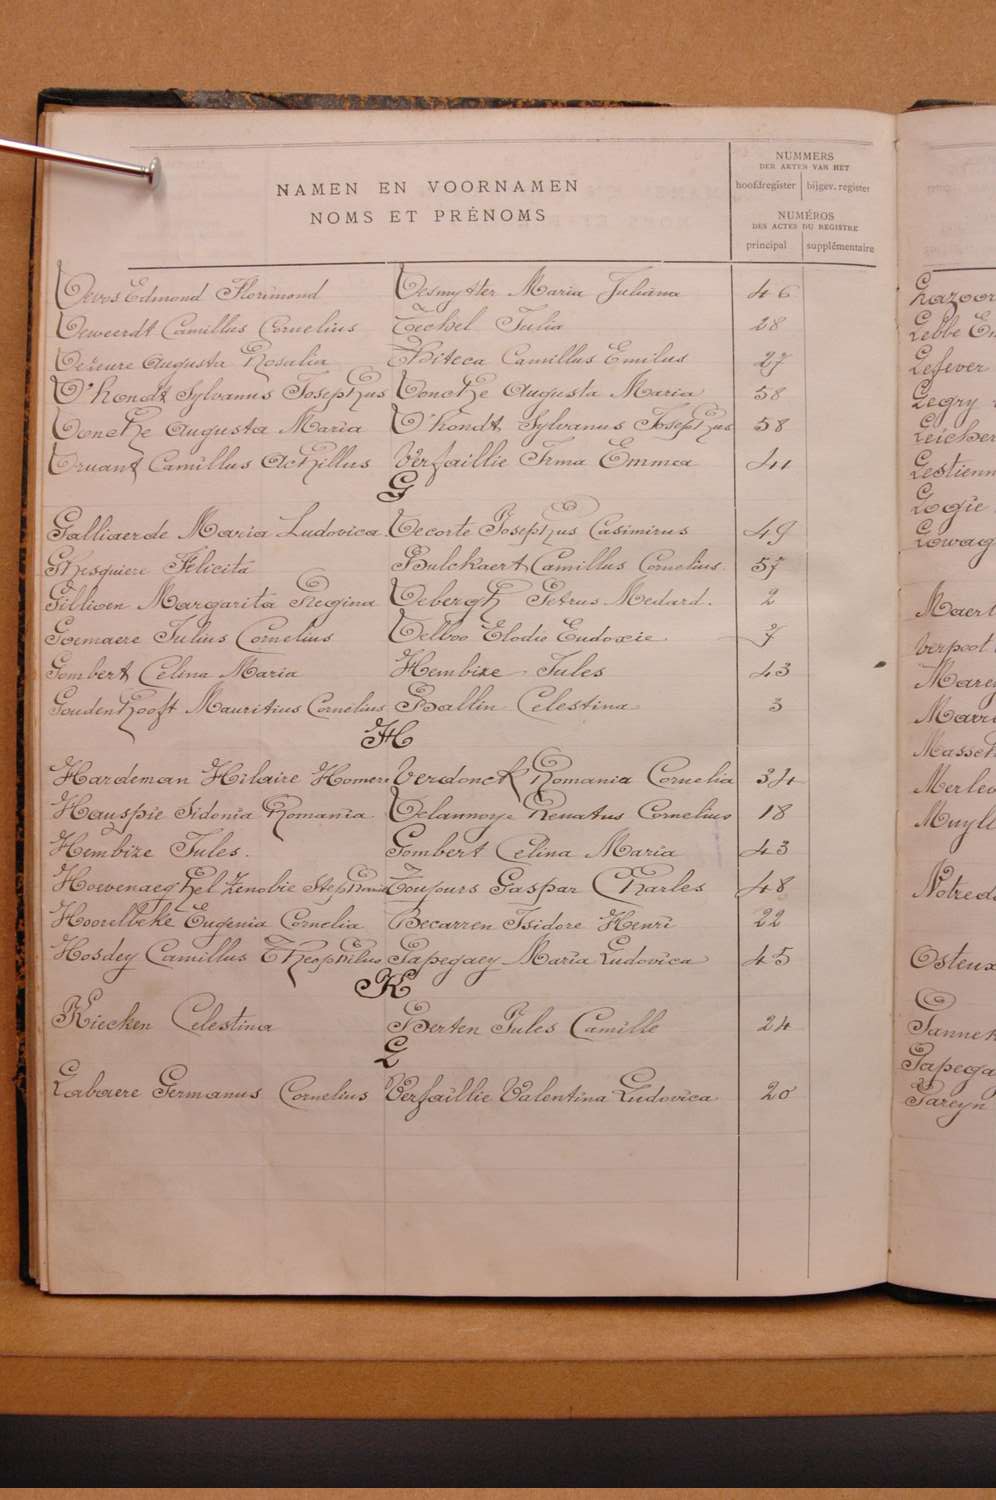 NAMEN EN VOORNAMEN
NOMS ET PRÉNOMS
NUMMERS
DER AKTEN VAN HET
hoofdregister bijgev. register
NUMÉROS
DES ACTES DU REGISTRE
principal supplémentaire
Devos Edmond Florimond Desmytter Maria Juliana 46
Deweerdt Camillus Cornelius Techel Julia 28
Dezeure Augusta Rosalia Thiteca Camillus Emilus 27
D'hondt Sylvanus Josephus Donche Augusta Maria 58
Donche Augusta Maria D'hondt Sylvanus Josephus 58
Druant Camillus Achillus Verfaillie Irma Emmea 44
G
Galliaerde Maria Ludovica Decorte Josephus Casimirus 49
Ghesquiere Felicita Bulckaert Camillus Cornelius. 57
Gillioen Margarita Regina Debergh Petrus Medard. 2
Goemaere Julius Cornelius Delboo Elodie Eudoxie 7
Gombert Celina Maria Hembize Jules 43
Goudenhooft Mauritius Cornelius Ballin Celestina 3
H
Hardeman Hilaire Homere Verdonck Romania Cornelia 34
Hauspie Sidonia Romania Delannoye Renatus Cornelius 18
Hembize Jules. Gombert Celina Maria 43
Hoevenaeghel Zenobie Toujours Gaspar Charles 48
Hoorelbeke Eugenia Cornelia Becarren Isidore Henri 22
Hosdey Camillus Theophilus Papegaey Maria Ludovica 45
K
Kiecken Celestina Berten Jules Camille 24
L
Labaere Germanus Cornelius Verfaillie Valentina Ludovica 20
Lefever
Legry
Lestienn
Logie
Lowag
Maert
Masseh
Merlev
Muylle
Notreda
Osteux
Pannek
Papega
Pareyn